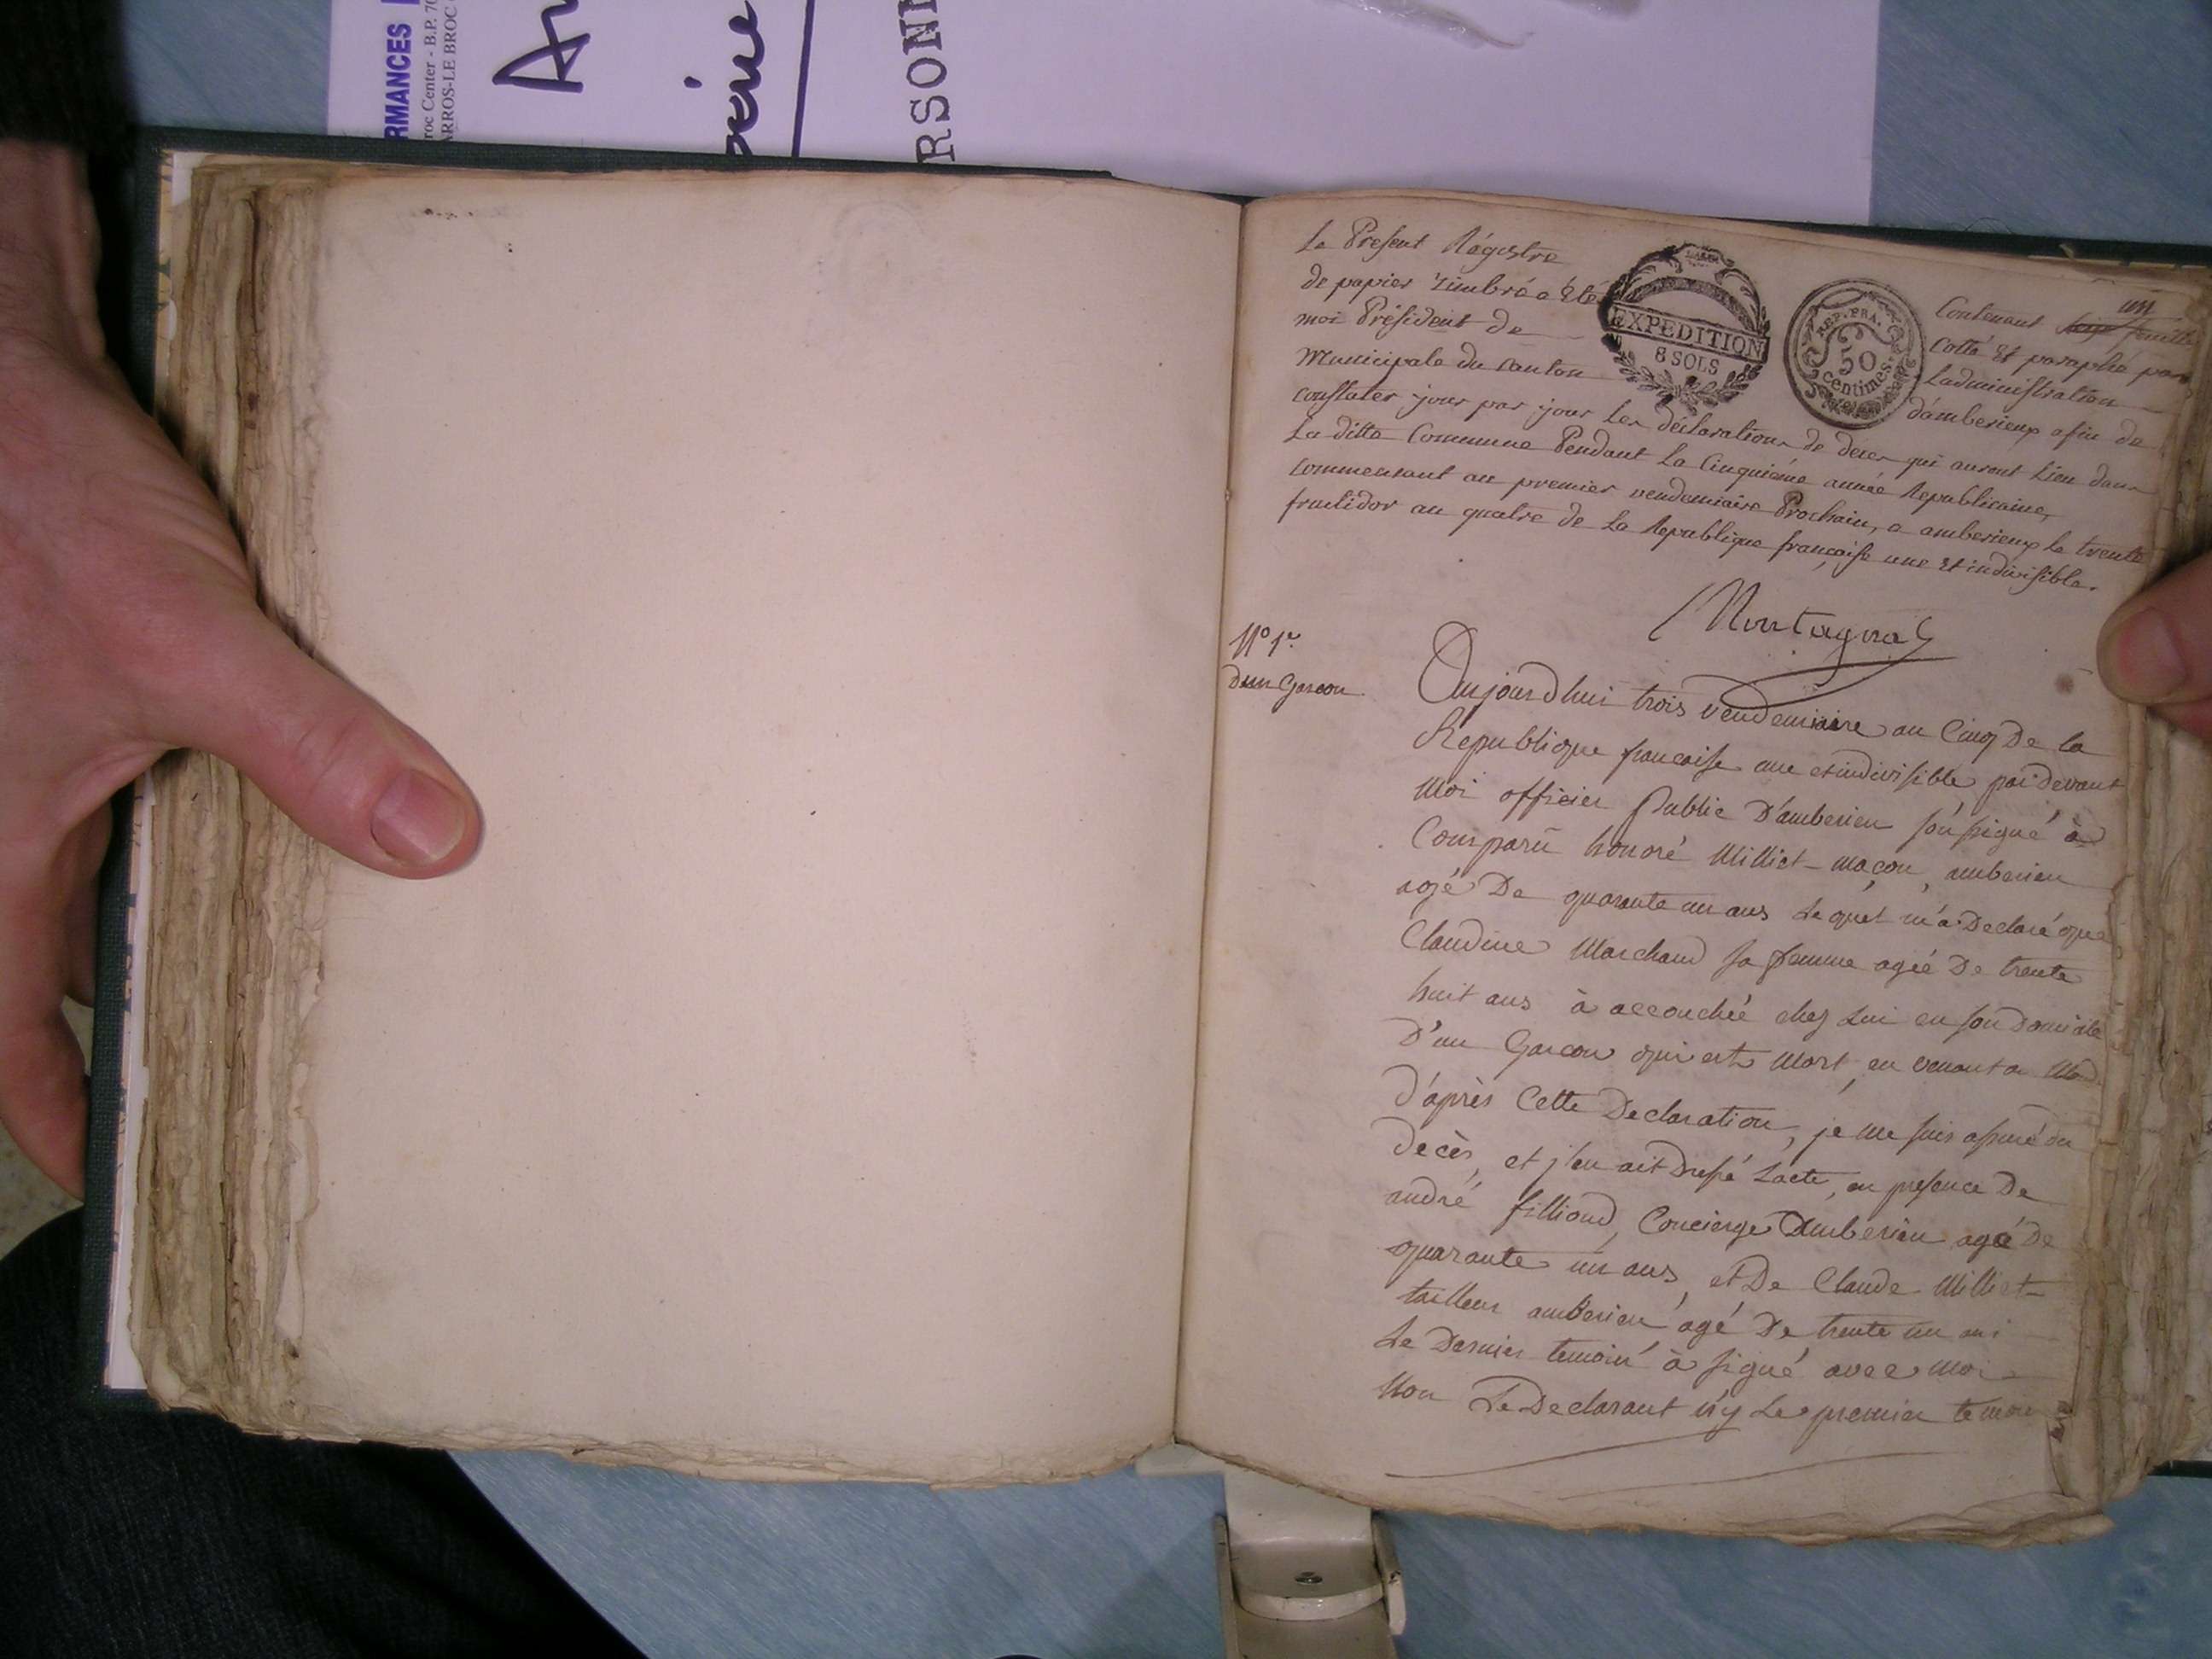 RMANCES
roc Center - B.P. 70
ARROS-LE BROC
RSONN
Le Présent Régistre
de papier timbré a été
moi Président de
Municipale du Canton
EXPEDITION
8 SOLS
REP. FRA.
50
centimes
un
Contenant
Cotté Et paraphé par
Ladministration
d'amberieux afin de
constater jour par jour les déclarations de décès qui auront Lieu dans
La ditte Commune Pendant La Cinquiéme année Republicaine,
commensant au premier vendemiaire Prochain, a amberieux le trente
fructidor an quatre de La Republique française une Et indivisible.
Montagnat
N° 1er
D'un Garcon
Aujourdhui trois vendemiaire an Cinq De la
Republique francaise une et indivisible par devant
Moi officier Public D'amberieu soussigné à
Comparu honoré Milliet maçon, amberieu
agé De quarante un ans Lequel m'a Declaré que
Claudine Marchand sa femme agée De trente
huit ans à accouchée chez Lui en son Domicile
D'un Garcon qui est Mort, en venant a
D'après Cette Declaration, je me suis assuré du
decès, et j'en ait Dressé Lacte, en presence De
andré filliond, Concierge Damberieu agé De
quarante un ans, et De Claude Milliet
tailleur amberieu agé De trente un ans
Le Dernier temoin à signé avec Moi
Non Le Declarant n'y Le premier temoin